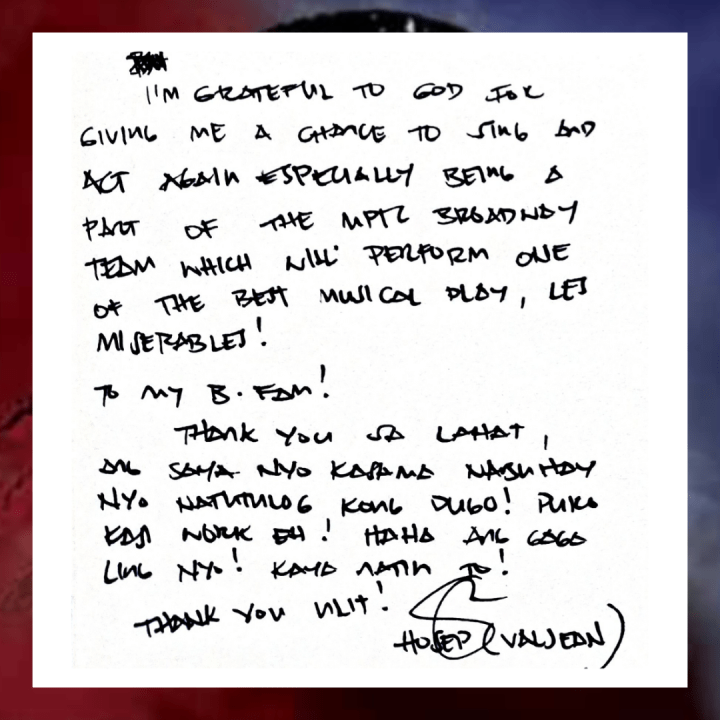 I'M GRATEFUL TO GOD FOR
GIVING ME A CHANCE TO SING AND
ACT AGAIN ESPECIALLY BEING A
PART OF THE MPTC BROADWAY
TEAM WHICH WILL PERFORM ONE
OF THE BEST MUSICAL PLAY, LES
MISERABLES!
TO MY B. FAM!
THANK YOU SA LAHAT,
ANG SAYA NYO KASAMA NABUHAY
NYO NATUTULOG KONG DUGO! PURO
KASI WORK EH! HAHA ANG GAGA
LING NYO! KAYA NATIN TO!
THANK YOU ULIT!
HOSEP (VALJEAN)